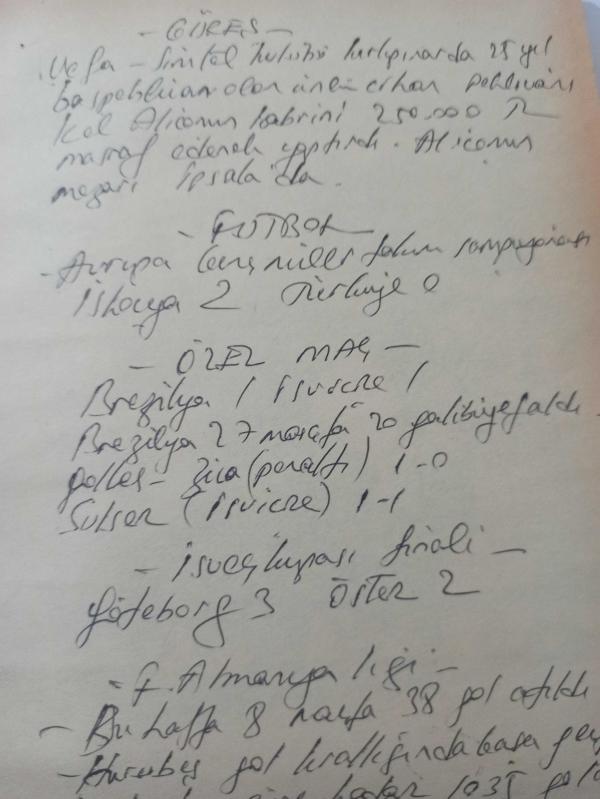 - GÜREŞ -
Vefa - Simtel kulübü kırkpınarda 25 yıl
başpehlivan olan ünlü cihan pehlivanı
Kel Aliconun kabrini 250.000 TL
masraf ederek yaptırdı. Aliconun
mezarı İpsala'da.
- FUTBOL -
- Avrupa Genç milli takım şampiyonası
İskoçya 2 Türkiye 0
- ÖZEL MAÇ -
Brezilya 1 İsviçre 1
Brezilya 27 maçta 20 galibiyet aldı
goller - Zico (penaltı) 1-0
Sulser (İsviçre) 1-1
- İsveç kupası finali -
Göteborg 3 Öster 2
- F. Almanya ligi -
- Bu hafta 8 maçta 38 gol atıldı
- Hurubeş gol krallığında başa
kadar 1035